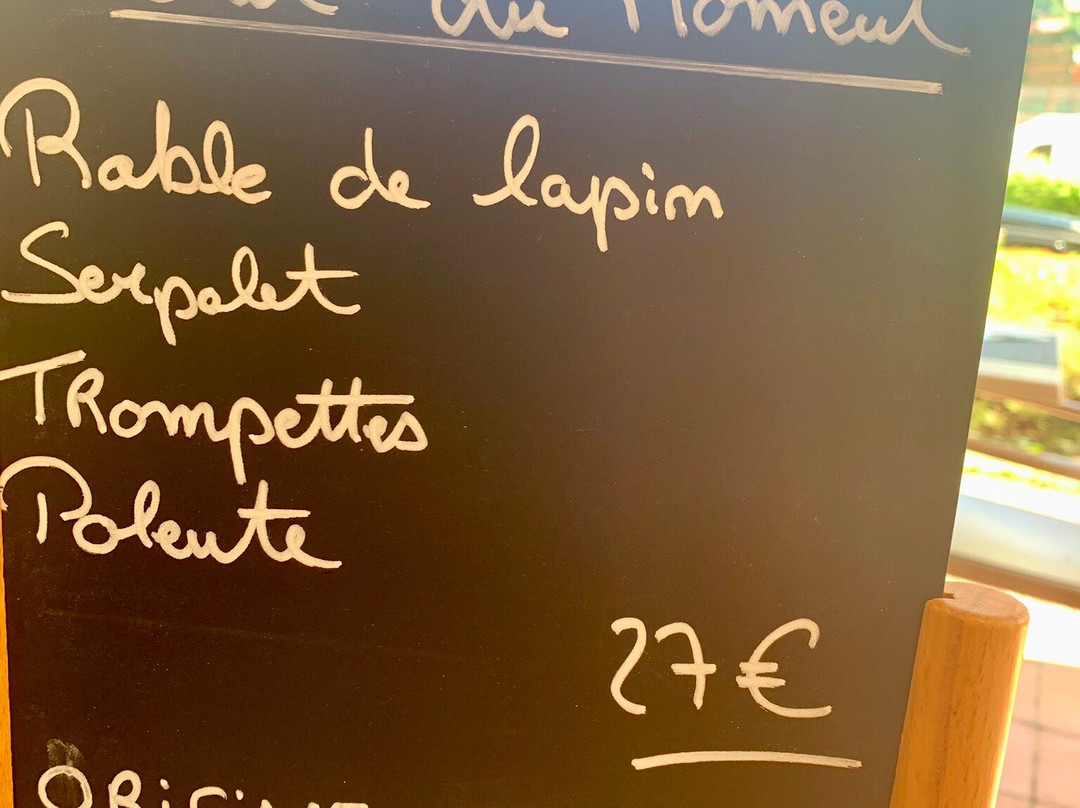 du Moment
Rable de lapin
Serpolet
TRompettes
Polente
27€
ORIGINE